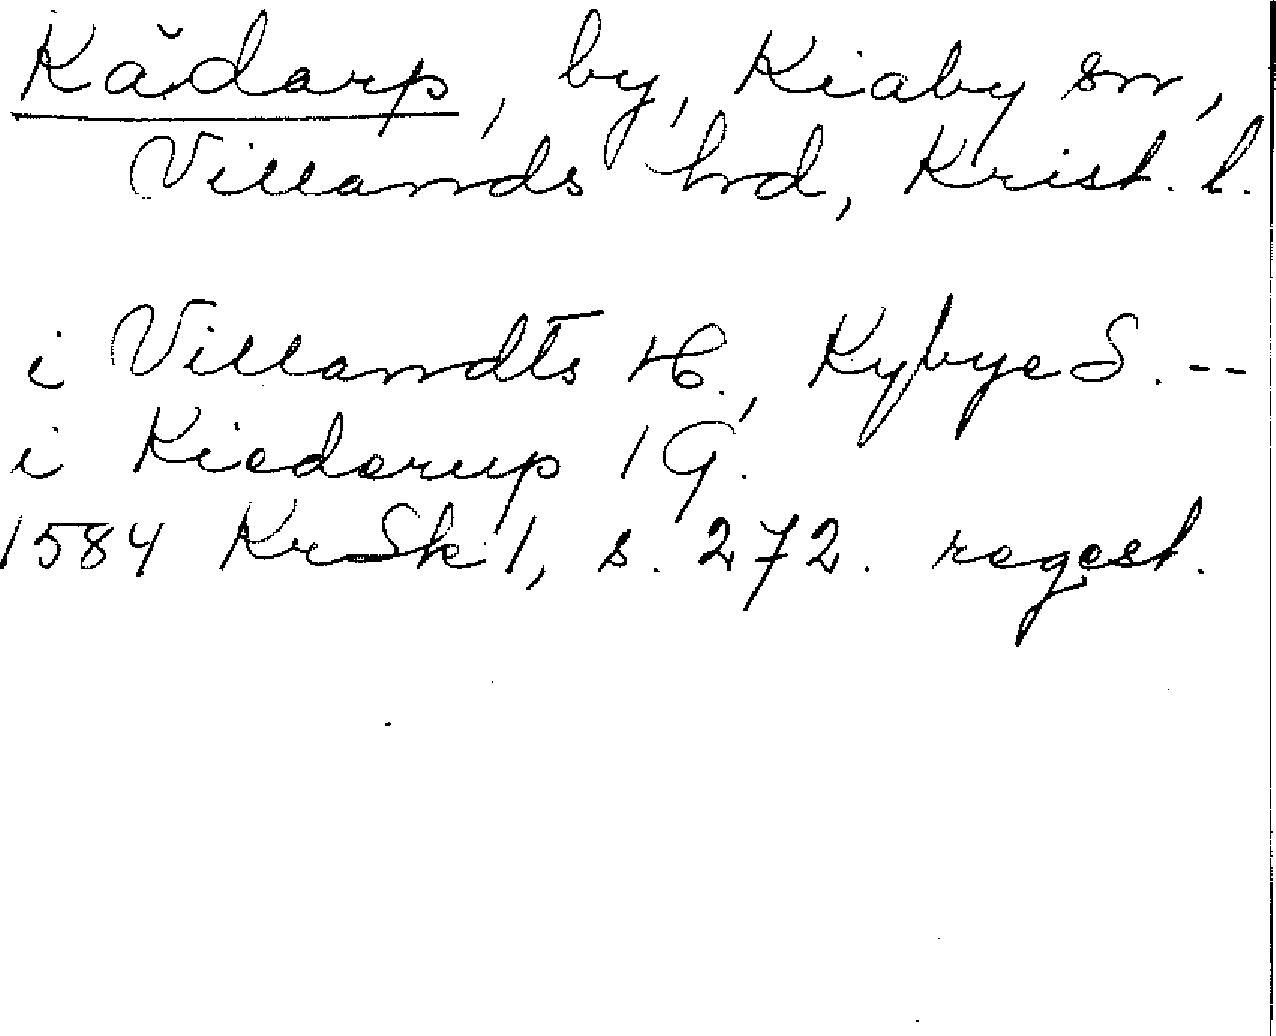 Kådarp, by, Kiaby sn,
Villands hrd, Krist. l.
i Villandts H., Kybye S. --
i Kiedorup 1 G.
1584 KrSk 1, s. 272. regest.